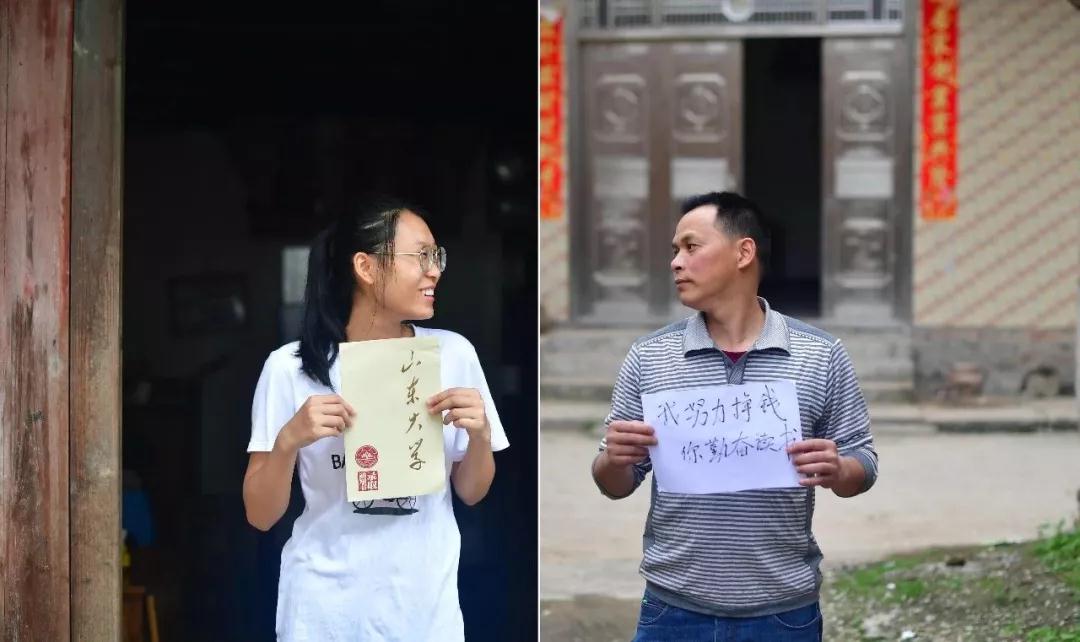 山东大学
录取
BA
我努力挣钱
你勤奋读书